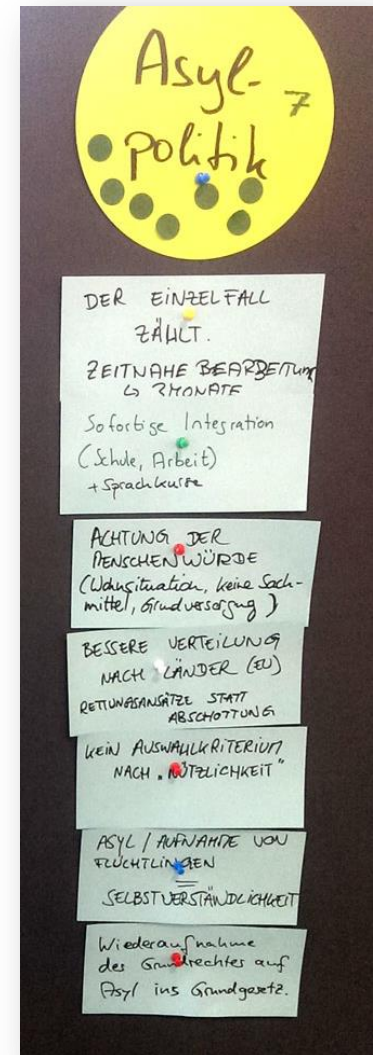 Asyl-
politik
7
DER EINZELFALL
ZÄHLT.
ZEITNAHE BEARBEITUNG
↳ 3 MONATE
Sofortige Integration
(Schule, Arbeit)
+ Sprachkurse
ACHTUNG DER
MENSCHENWÜRDE
(Wohnsituation, keine Sach-
mittel, Grundversorgung)
BESSERE VERTEILUNG
NACH LÄNDER (EU)
RETTUNGSANSÄTZE STATT
ABSCHOTTUNG
KEIN AUSWAHLKRITERIUM
NACH „NÜTZLICHKEIT"
ASYL / AUFNAHME VON
FLÜCHTLINGEN
=
SELBSTVERSTÄNDLICHKEIT
Wiederaufnahme
des Grundrechtes auf
Asyl ins Grundgesetz.